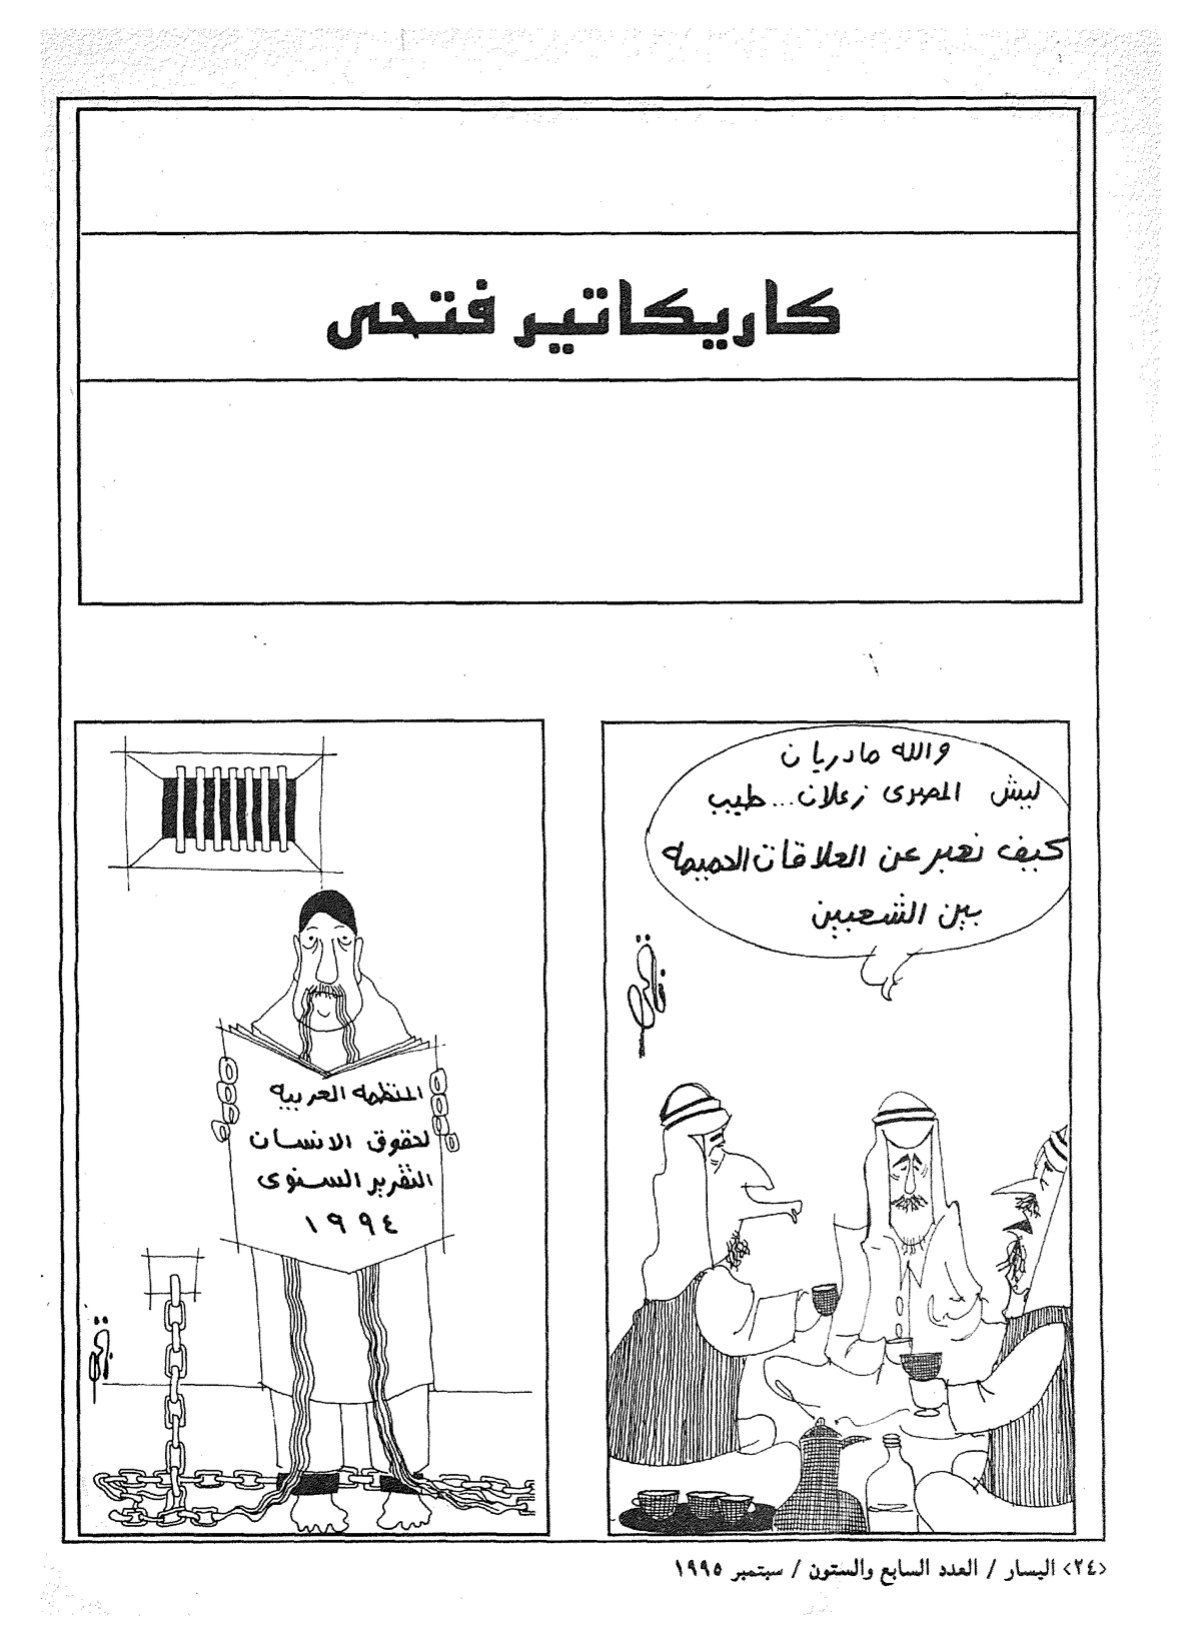 كاريكاتير فتحى
والله مادريان
ليش المصرى زعلان... طيب
كيف نعبر عن العلاقات الحميمه
بين الشعبين
فتحى
المنظمه العربيه
لحقوق الانسان
التقرير السنوى
١٩٩٤
فتحى
<٢٤> اليسار / العدد السابع والستون / سبتمبر ١٩٩٥